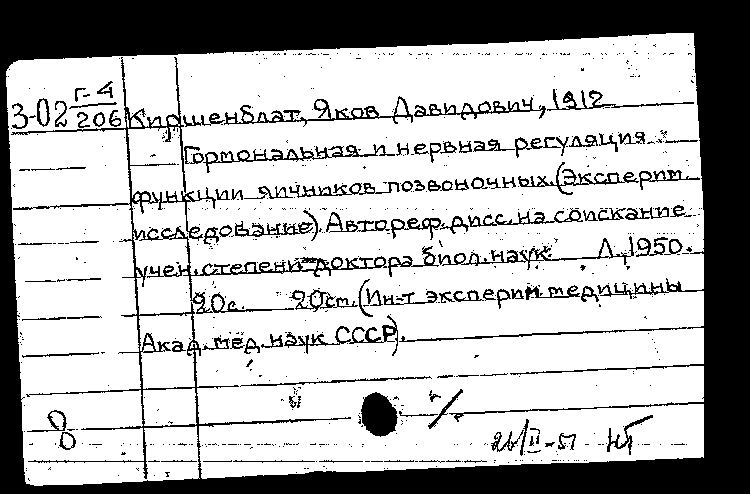 Г-4
3-02 206 Киршенблат, Яков Давидович, 1912
Гормональная и нервная регуляция
функции яичников позвоночных. (Эксперим.
исследование). Автореф. дисс. на соискание
учен. степени доктора биол. наук. Л., 1950.
20с. 20см. (Ин-т эксперим. медицины
Акад. мед. наук СССР).
8
26/II-51